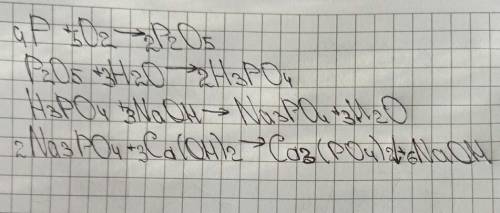 4P + 5O2 → 2P2O5
P2O5 + 3H2O → 2H3PO4
H3PO4 + 3NaOH → Na3PO4 + 3H2O
2Na3PO4 + 3Ca(OH)2 → Ca3(PO4)2 + 6NaOH